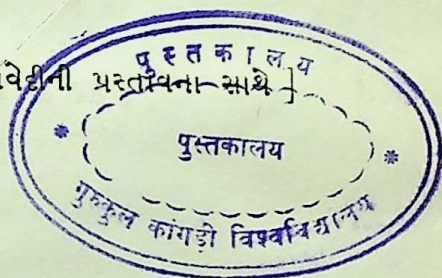 વેદીની પ્રસ્તાવના સાથે ]
पुस्तकालय
पुस्तकालय
गुरुकुल कांगड़ी विश्वविद्यालय